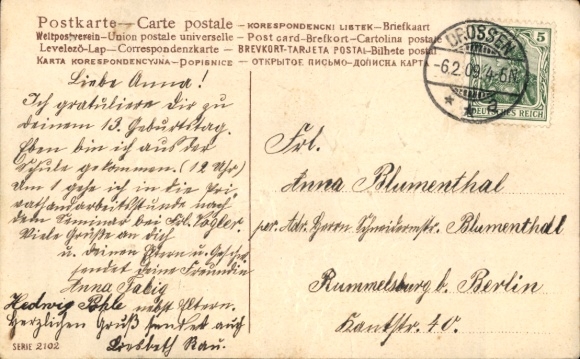 Postkarte — Carte postale — KORESPONDENCNI LISTEK — Briefkaart
Weltpostverein — Union postale universelle — Post card — Brefkort — Cartolina postale
Levelező-Lap — Correspondenzkarte — BREVKORT — TARJETA POSTAL — Bilhete postal
KARTA KORESPONDENCYJNA — DOPISNICE — ОТКРЫТОЕ ПИСЬМО — ДОПИСНА КАРТА
DROSSEN
-6.2.09. 4-5N.
5
DEUTSCHES REICH
Liebe Anna!
Ich gratuliere Dir zu
deinem 13. Geburtstag.
Eben bin ich aus der
Schule gekommen. (12 Uhr)
Um 1 gehe ich in die Pri-
vathandarbeitsstunde nach
dem Seminar bei Frl. Vogler.
Viele Grüße an dich
u. deinen Eltern u. Gesch.
sendet deine Freundin
Anna Fabig
nebst Eltern.
Hedwig Pohle
Herzlichen Gruß sendet auch
Lisbeth Rau.
Frl.
Anna Blumenthal
per. Adr. Herrn Schneidermstr. Blumenthal
Rummelsburg b. Berlin
Kantstr. 40.
SERIE 2102